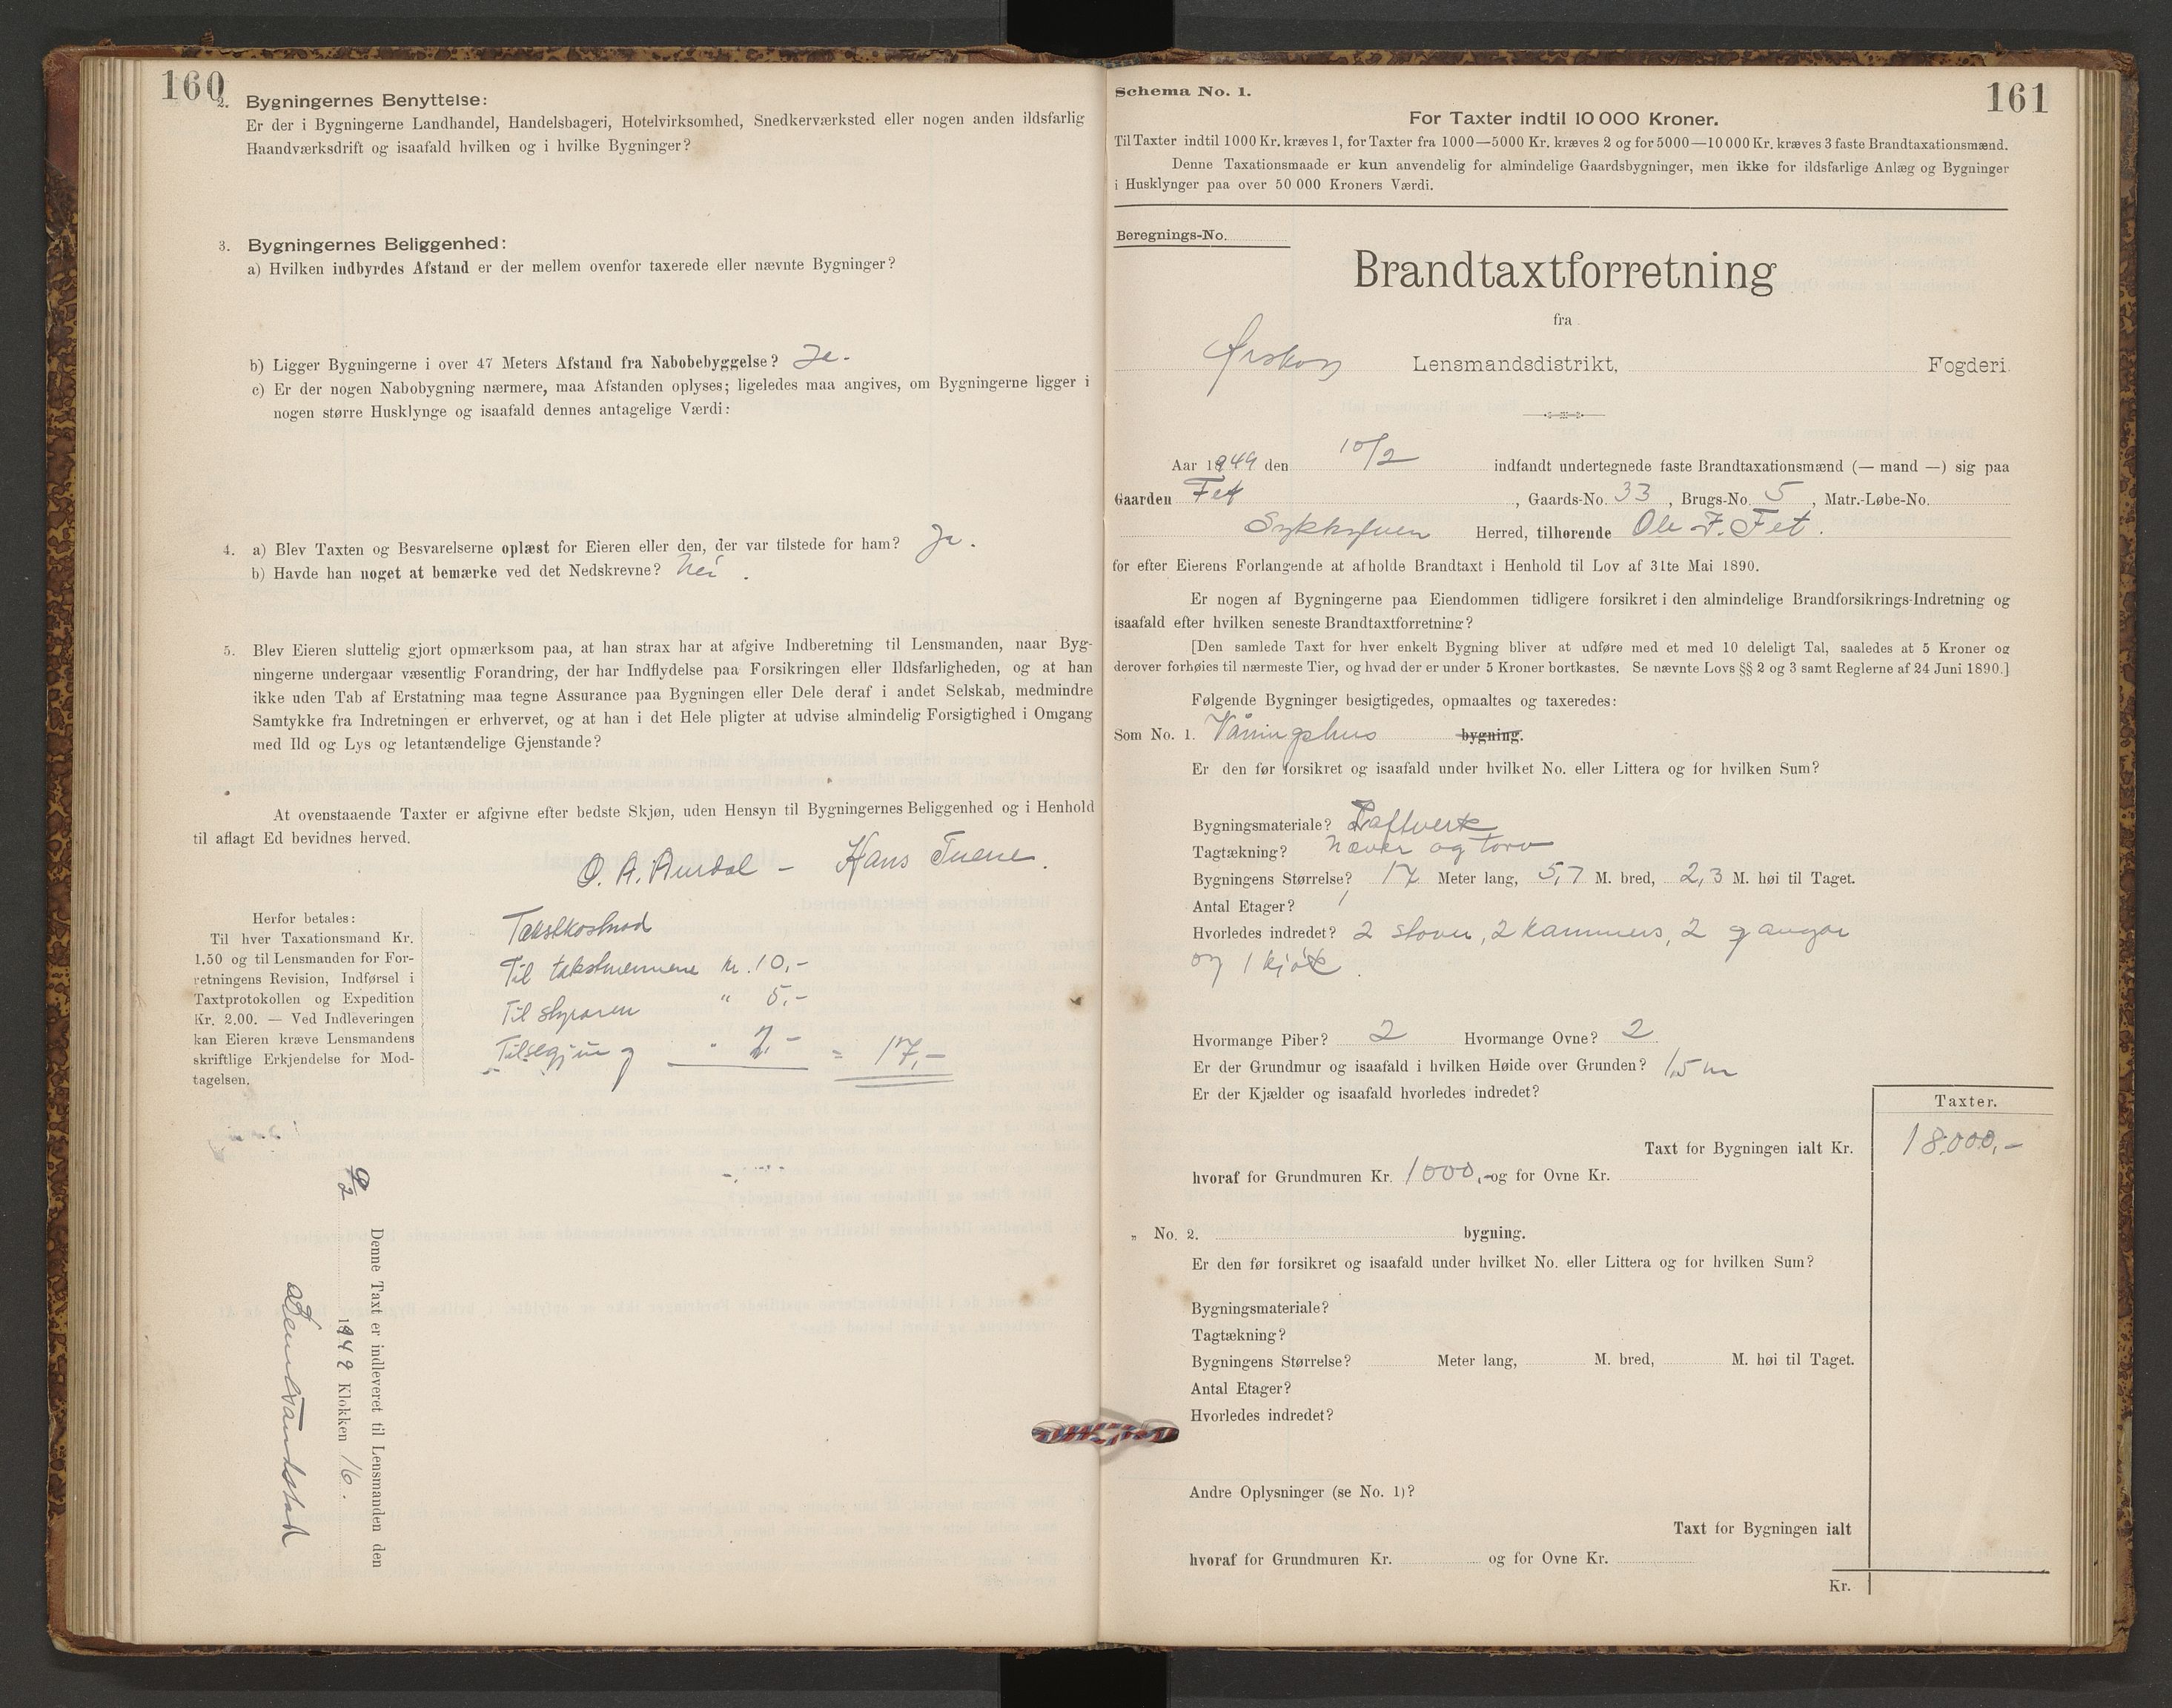 160
2. Bygningernes Benyttelse:
Er der i Bygningerne Landhandel, Handelsbageri, Hotelvirksomhed, Snedkerværksted eller nogen anden ildsfarlig
Haandværksdrift og isaafald hvilken og i hvilke Bygninger?
3. Bygningernes Beliggenhed:
a) Hvilken indbyrdes Afstand er der mellem ovenfor taxerede eller nævnte Bygninger?
b) Ligger Bygningerne i over 47 Meters Afstand fra Nabobebyggelse? Ja.
c) Er der nogen Nabobygning nærmere, maa Afstanden oplyses; ligeledes maa angives, om Bygningerne ligger i
nogen større Husklynge og isaafald dennes antagelige Værdi:
4. a) Blev Taxten og Besvarelserne oplæst for Eieren eller den, der var tilstede for ham? Ja.
b) Havde han noget at bemærke ved det Nedskrevne? Nei.
5. Blev Eieren sluttelig gjort opmærksom paa, at han strax har at afgive Indberetning til Lensmanden, naar Byg-
ningerne undergaar væsentlig Forandring, der har Indflydelse paa Forsikringen eller Ildsfarligheden, og at han
ikke uden Tab af Erstatning maa tegne Assurance paa Bygningen eller Dele deraf i andet Selskab, medmindre
Samtykke fra Indretningen er erhvervet, og at han i det Hele pligter at udvise almindelig Forsigtighed i Omgang
med Ild og Lys og letantændelige Gjenstande?
At ovenstaaende Taxter er afgivne efter bedste Skjøn, uden Hensyn til Bygningernes Beliggenhed og i Henhold
til aflagt Ed bevidnes herved.
O. A. Aurdal - Hans Tuene.
Herfor betales:
Til hver Taxationsmand Kr.
1.50 og til Lensmanden for For-
retningens Revision, Indførsel i
Taxtprotokollen og Expedition
Kr. 2.00. — Ved Indleveringen
kan Eieren kræve Lensmandens
skriftlige Erkjendelse for Mod-
tagelsen.
Takstkostnad
Til takstmennene kr. 10,-
Til styraren " 5,-
Tilsegjing " 2,- = 17,-
Denne Taxt er indleveret til Lensmanden den
1949 Klokken 16.
161
Schema No. 1.
For Taxter indtil 10 000 Kroner.
Til Taxter indtil 1000 Kr. kræves 1, for Taxter fra 1000—5000 Kr. kræves 2 og for 5000—10 000 Kr. kræves 3 faste Brandtaxationsmænd.
Denne Taxationsmaade er kun anvendelig for almindelige Gaardsbygninger, men ikke for ildsfarlige Anlæg og Bygninger
i Husklynger paa over 50 000 Kroners Værdi.
Beregnings-No.
Brandtaxtforretning
fra
Ørskog Lensmandsdistrikt, Fogderi.
Aar 1949 den 10/2 indfandt undertegnede faste Brandtaxationsmænd (— mand —) sig paa
Gaarden Fet, Gaards-No. 33, Brugs-No. 5, Matr.-Løbe-No.
Sykkylven Herred, tilhørende Ole F. Fet.
for efter Eierens Forlangende at afholde Brandtaxt i Henhold til Lov af 31te Mai 1890.
Er nogen af Bygningerne paa Eiendommen tidligere forsikret i den almindelige Brandforsikrings-Indretning og
isaafald efter hvilken seneste Brandtaxtforretning?
[Den samlede Taxt for hver enkelt Bygning bliver at udføre med et med 10 deleligt Tal, saaledes at 5 Kroner og
derover forhøies til nærmeste Tier, og hvad der er under 5 Kroner bortkastes. Se nævnte Lovs §§ 2 og 3 samt Reglerne af 24 Juni 1890.]
Følgende Bygninger besigtigedes, opmaaltes og taxeredes:
Som No. 1. Våningshus bygning.
Er den før forsikret og isaafald under hvilket No. eller Littera og for hvilken Sum?
Bygningsmateriale? Laftverk
Tagtækning? Never og torv
Bygningens Størrelse? 17 Meter lang, 5,7 M. bred, 2,3 M. høi til Taget.
Antal Etager? 1
Hvorledes indredet? 2 stover, 2 kammers, 2 gangar
og 1 kjøk.
Hvormange Piber? 2 Hvormange Ovne? 2
Er der Grundmur og isaafald i hvilken Høide over Grunden? 1,5 m
Er der Kjælder og isaafald hvorledes indredet?
Taxter.
Taxt for Bygningen ialt Kr. 18000,-
hvoraf for Grundmuren Kr. 1000,- og for Ovne Kr.
„ No. 2. bygning.
Er den før forsikret og isaafald under hvilket No. eller Littera og for hvilken Sum?
Bygningsmateriale?
Tagtækning?
Bygningens Størrelse? Meter lang, M. bred, M. høi til Taget.
Antal Etager?
Hvorledes indredet?
Andre Oplysninger (se No. 1)?
Taxt for Bygningen ialt
hvoraf for Grundmuren Kr. og for Ovne Kr.
Kr.